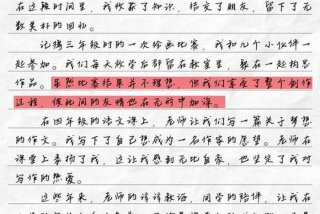 在这段时间里，我收获了知识，结交了朋友，留下了无
数美好的回忆。
记得三年级时的一次绘画比赛，我和几个小伙伴一
起参加。我们每天放学后都留在教室里，聚在一起构思
作品。虽然比赛结果并不理想，但我们享受了整个创作
过程，彼此间的友情也在无形中加深。
在四年级的语文课上，老师让我们写一篇关于梦想
的作文。我写下了自己想成为一名作家的愿望。老师在
课堂上表扬了我，这让我感到无比自豪，也坚定了我对
写作的热爱。
这些年来，老师的谆谆教诲，同学的陪伴，让我在